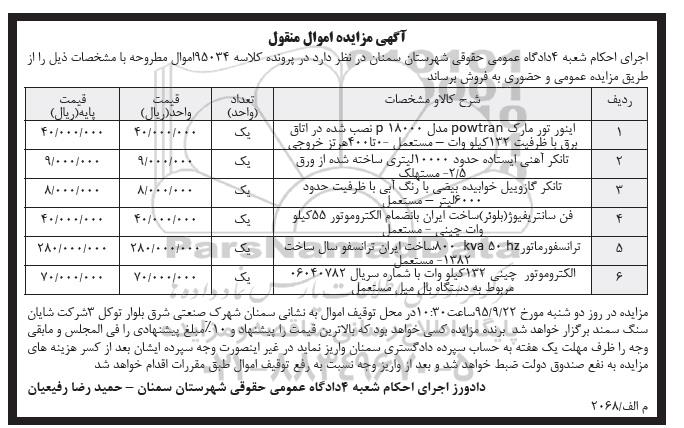 آگهی مزایده اموال منقول
اجرای احکام شعبه ۴دادگاه عمومی حقوقی شهرستان سمنان در نظر دارد در پرونده کلاسه ۹۵۰۳۴اموال مطروحه با مشخصات ذیل را از
طریق مزایده عمومی و حضوری به فروش برساند
ردیف شرح کالاو مشخصات تعداد (واحد) قیمت واحد(ریال) قیمت پایه(ریال)
۱ اینور تور مارک powtran مدل p ۱۸۰۰۰ نصب شده در اتاق برق با ظرفیت ۱۳۲کیلو وات – مستعمل -۰تا۴۰۰هرتز خروجی یک ۴۰/۰۰۰/۰۰۰ ۴۰/۰۰۰/۰۰۰
۲ تانکر آهنی ایستاده حدود ۱۰۰۰۰لیتری ساخته شده از ورق ۲/۵- مستهلک یک ۹/۰۰۰/۰۰۰ ۹/۰۰۰/۰۰۰
۳ تانکر گازوییل خوابیده بیضی با رنگ آبی با ظرفیت حدود ۶۰۰۰لیتر – مستعمل یک ۸/۰۰۰/۰۰۰ ۸/۰۰۰/۰۰۰
۴ فن سانتریفیوژ(بلوئر)ساخت ایران بانضمام الکتروموتور ۵۵کیلو وات چینی - مستعمل یک ۴۰/۰۰۰/۰۰۰ ۴۰/۰۰۰/۰۰۰
۵ ترانسفورماتور۸۰۰ kva ۵۰ hzساخت ایران ترانسفو سال ساخت ۱۳۸۲- مستعمل یک ۲۸۰/۰۰۰/۰۰۰ ۲۸۰/۰۰۰/۰۰۰
۶ الکتروموتور چینی ۱۳۲کیلو وات با شماره سریال ۰۶۰۴۰۷۸۲ مربوط به دستگاه بال میل مستعمل یک ۷۰/۰۰۰/۰۰۰ ۷۰/۰۰۰/۰۰۰
مزایده در روز دو شنبه مورخ ۹۵/۹/۲۲ساعت۱۰:۳۰در محل توقیف اموال به نشانی سمنان شهرک صنعتی شرق بلوار توکل ۳شرکت شایان
سنگ سمند برگزار خواهد شد. برنده مزایده کسی خواهد بود که بالاترین قیمت را پیشنهاد و ۱۰٪مبلغ پیشنهادی را فی المجلس و مابقی
وجه را ظرف مهلت یک هفته به حساب سپرده دادگستری سمنان واریز نماید در غیر اینصورت وجه سپرده ایشان بعد از کسر هزینه های
مزایده به نفع صندوق دولت ضبط خواهد شد و بعد از واریز وجه نسبت به رفع توقیف اموال طبق مقررات اقدام خواهد شد
دادورز اجرای احکام شعبه ۴دادگاه عمومی حقوقی شهرستان سمنان – حمید رضا رفیعیان
م الف/۲۰۶۸